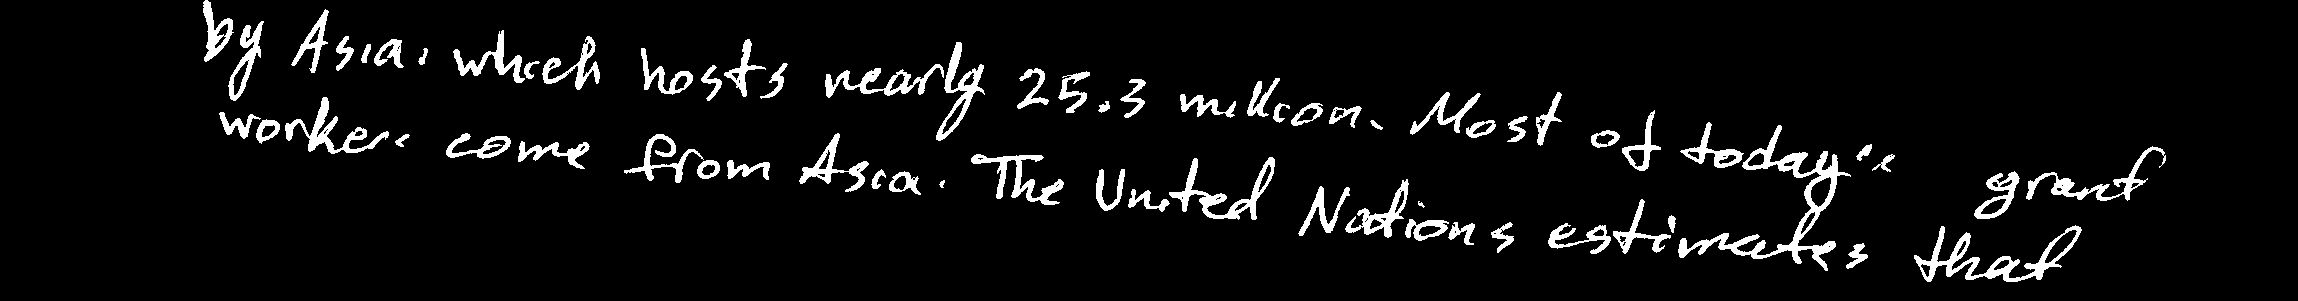 by Asia, which hosts nearly 25.3 million. Most of today's grant
workers come from Asia. The United Nations estimates that